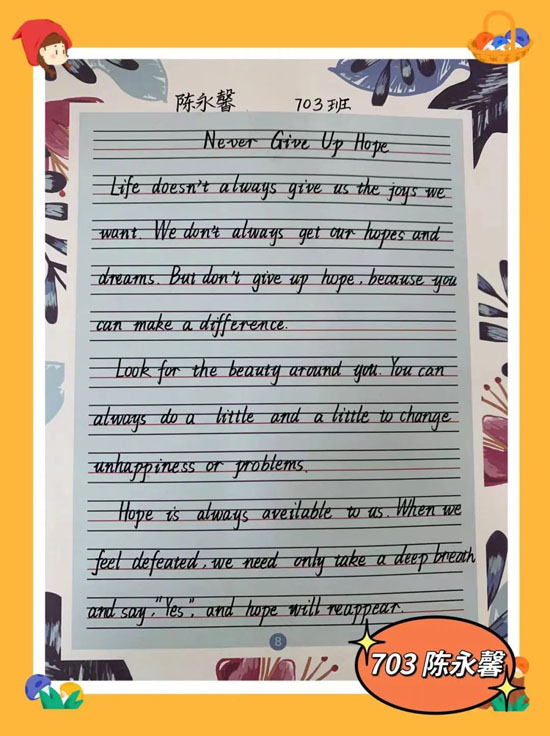 陈永馨 703班
Never Give Up Hope
Life doesn't always give us the joys we
want. We don't always get our hopes and
dreams. But don't give up hope, because you
can make a difference.
Look for the beauty around you. You can
always do a little and a little to change
unhappiness or problems.
Hope is always aveilable to us. When we
feel defeated, we need only take a deep breath
and say, "Yes", and hope will reappear.
8
703 陈永馨